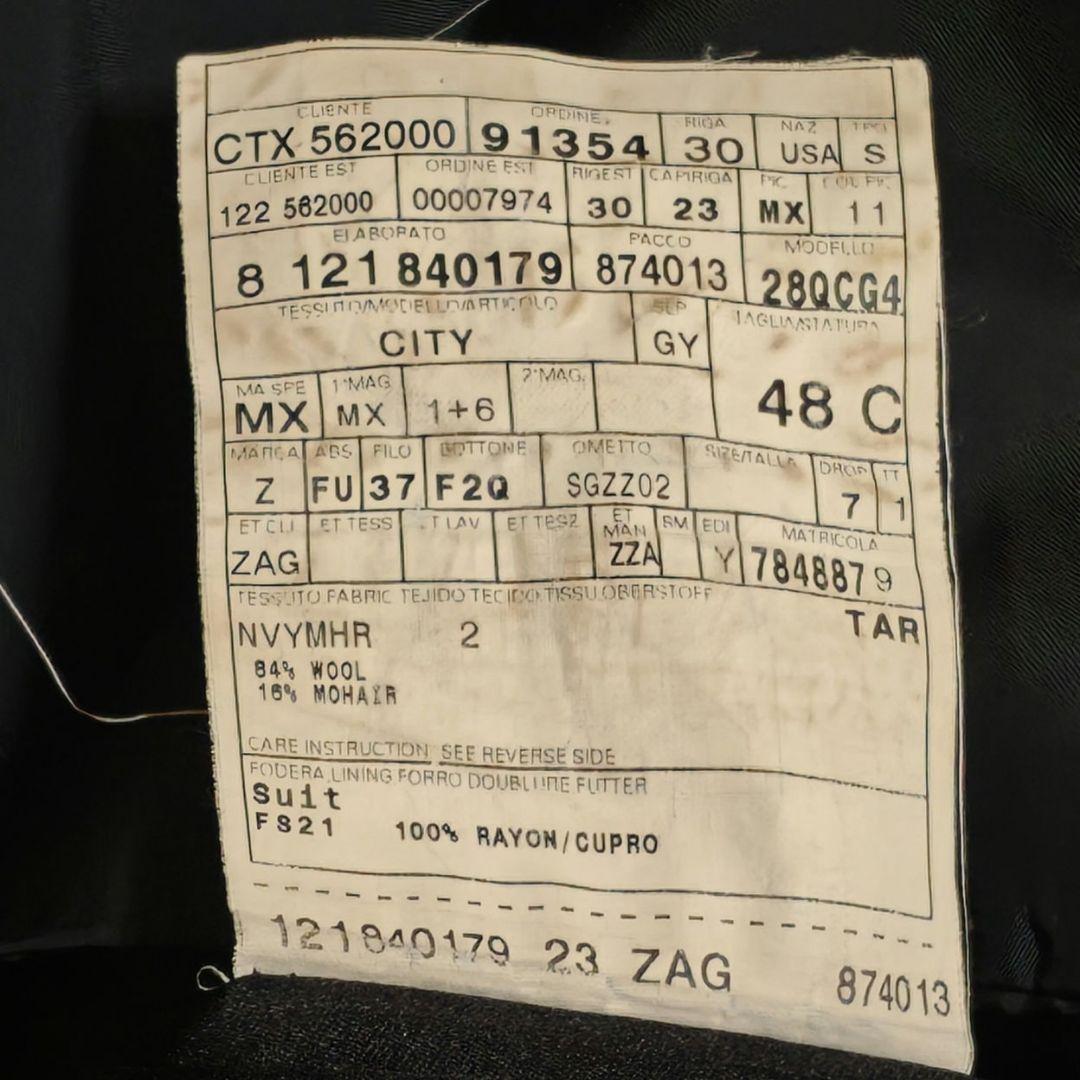 CLIENTE ORDINE RIGA NAZ TIPO
CTX 562000 91354 30 USA S
CLIENTE EST ORDINE EST RIGEST CAPIRIGA PIC COL PIC
122 562000 00007974 30 23 MX 11
ELABORATO PACCO MODELLO
8 121 840179 874013 28QCG4
TESSUTO/MODELLO/ARTICOLO TAGLIA/STATURA
CITY GY 48 C
MA SPE 1°MAG 2°MAG.
MX MX 1+6
MARCA ABS FILO BOTTONE OMETTO SIZE/TALLA DROP TT
Z FU 37 F2Q SGZZ02 7 1
ET CLI ET TESS ET LAV ET TES2 ET MAN RM EDI MATRICOLA
ZAG ZZA Y 7848879
TESSUTO FABRIC TEJIDO TECIDO TISSU OBERSTOFF
TAR
NVYMHR 2
84% WOOL
16% MOHAIR
CARE INSTRUCTION SEE REVERSE SIDE
FODERA LINING FORRO DOUBLURE FUTTER
Suit
FS21 100% RAYON/CUPRO
121840179 23 ZAG 874013